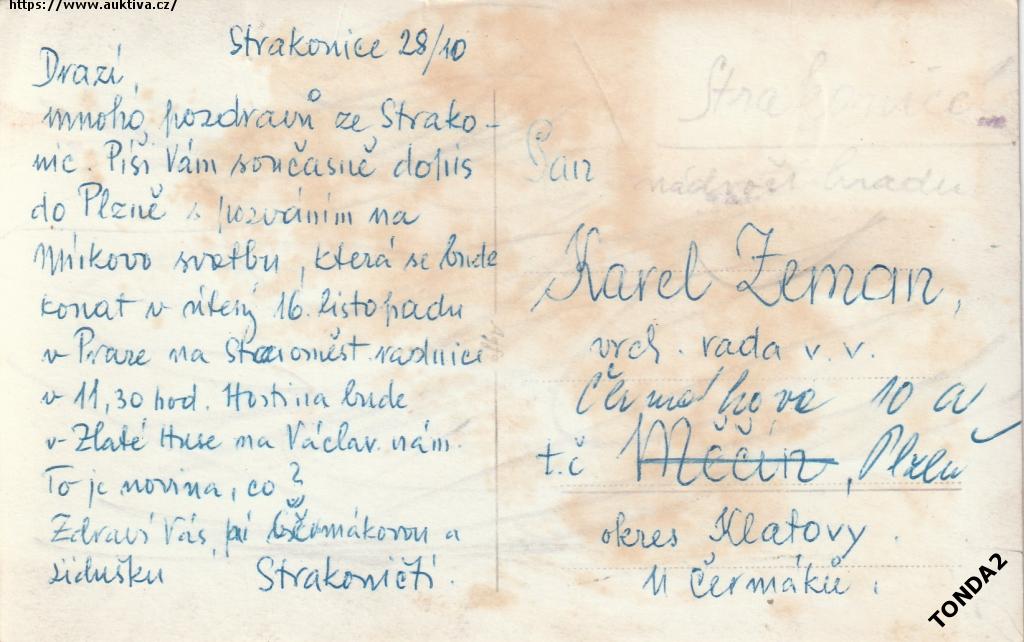 https://www.auktiva.cz/
Strakonice 28/10
Drazí,
mnoho pozdravů ze Strako-
nic. Píši Vám současně dopis
do Plzně s pozváním na
Mirkovo svatbu, která se bude
konat v úterý 16. listopadu
v Praze na Staroměst. radnici
v 11,30 hod. Hostina bude
v Zlaté Huse na Václav. nám.
To je novina, co?
Zdraví Vás, pí Čermákovou a
Lidušku Strakoničtí.
Strakonice
nádvoří hradu
Pan
Karel Zeman,
vrch. rada v. v.
10 a
t.č Měčín, Plzeň
okres Klatovy.
u Čermáků.
TONDA2